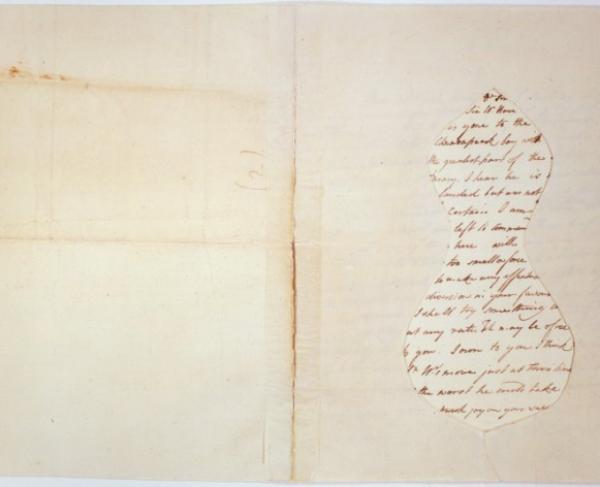 (2)
Sir W. Howe
is gone to the
Chesapeak bay with
the greatest part of the
army. I hear he is
landed but am not
certain. I am
left to command
here with
too small a force
to make any effectual
diversion in your favour
I shall try something
at any rate. It may be of use
to you. I own to you I think
Sr W's move just at this time
the worst he could take
much joy on your